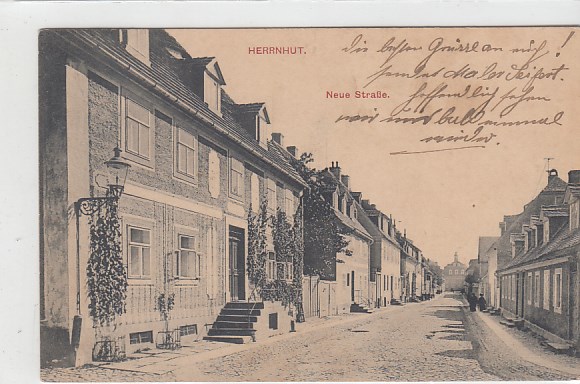 HERRNHUT.
Neue Straße.
die besten Grüsse an euch!
sendet Maler Seifert.
Hoffendlich sehen
wir uns bald einmal
wieder.